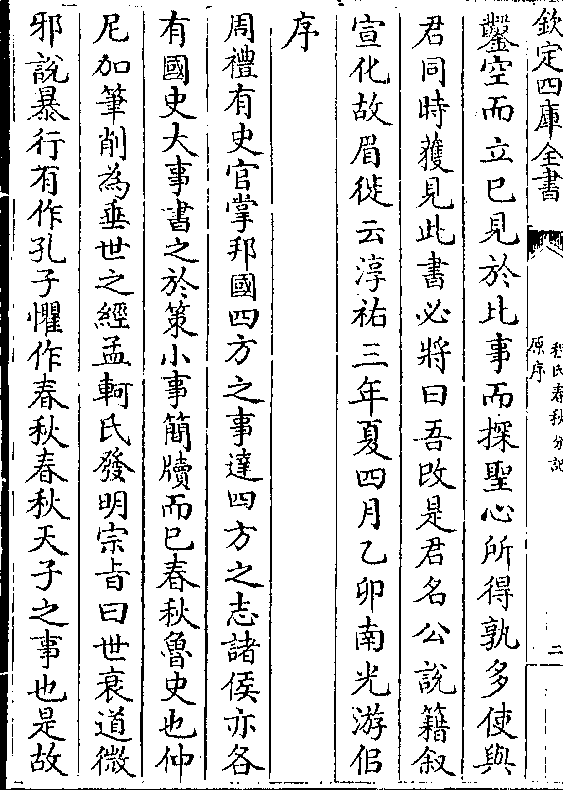 欽定四庫全書
程氏春秋分記
原序
二
鑿空而立已見於比事而探聖心所得孰多使與
君同時獲見此書必將曰吾改是君名公說籍叙
宣化故眉徙云淳祐三年夏四月乙卯南光游侶
序
周禮有史官掌邦國四方之事達四方之志諸侯亦各
有國史大事書之於策小事簡牘而已春秋魯史也仲
尼加筆削為垂世之經孟軻氏發明宗旨曰世衰道微
邪說暴行有作孔子懼作春秋春秋天子之事也是故